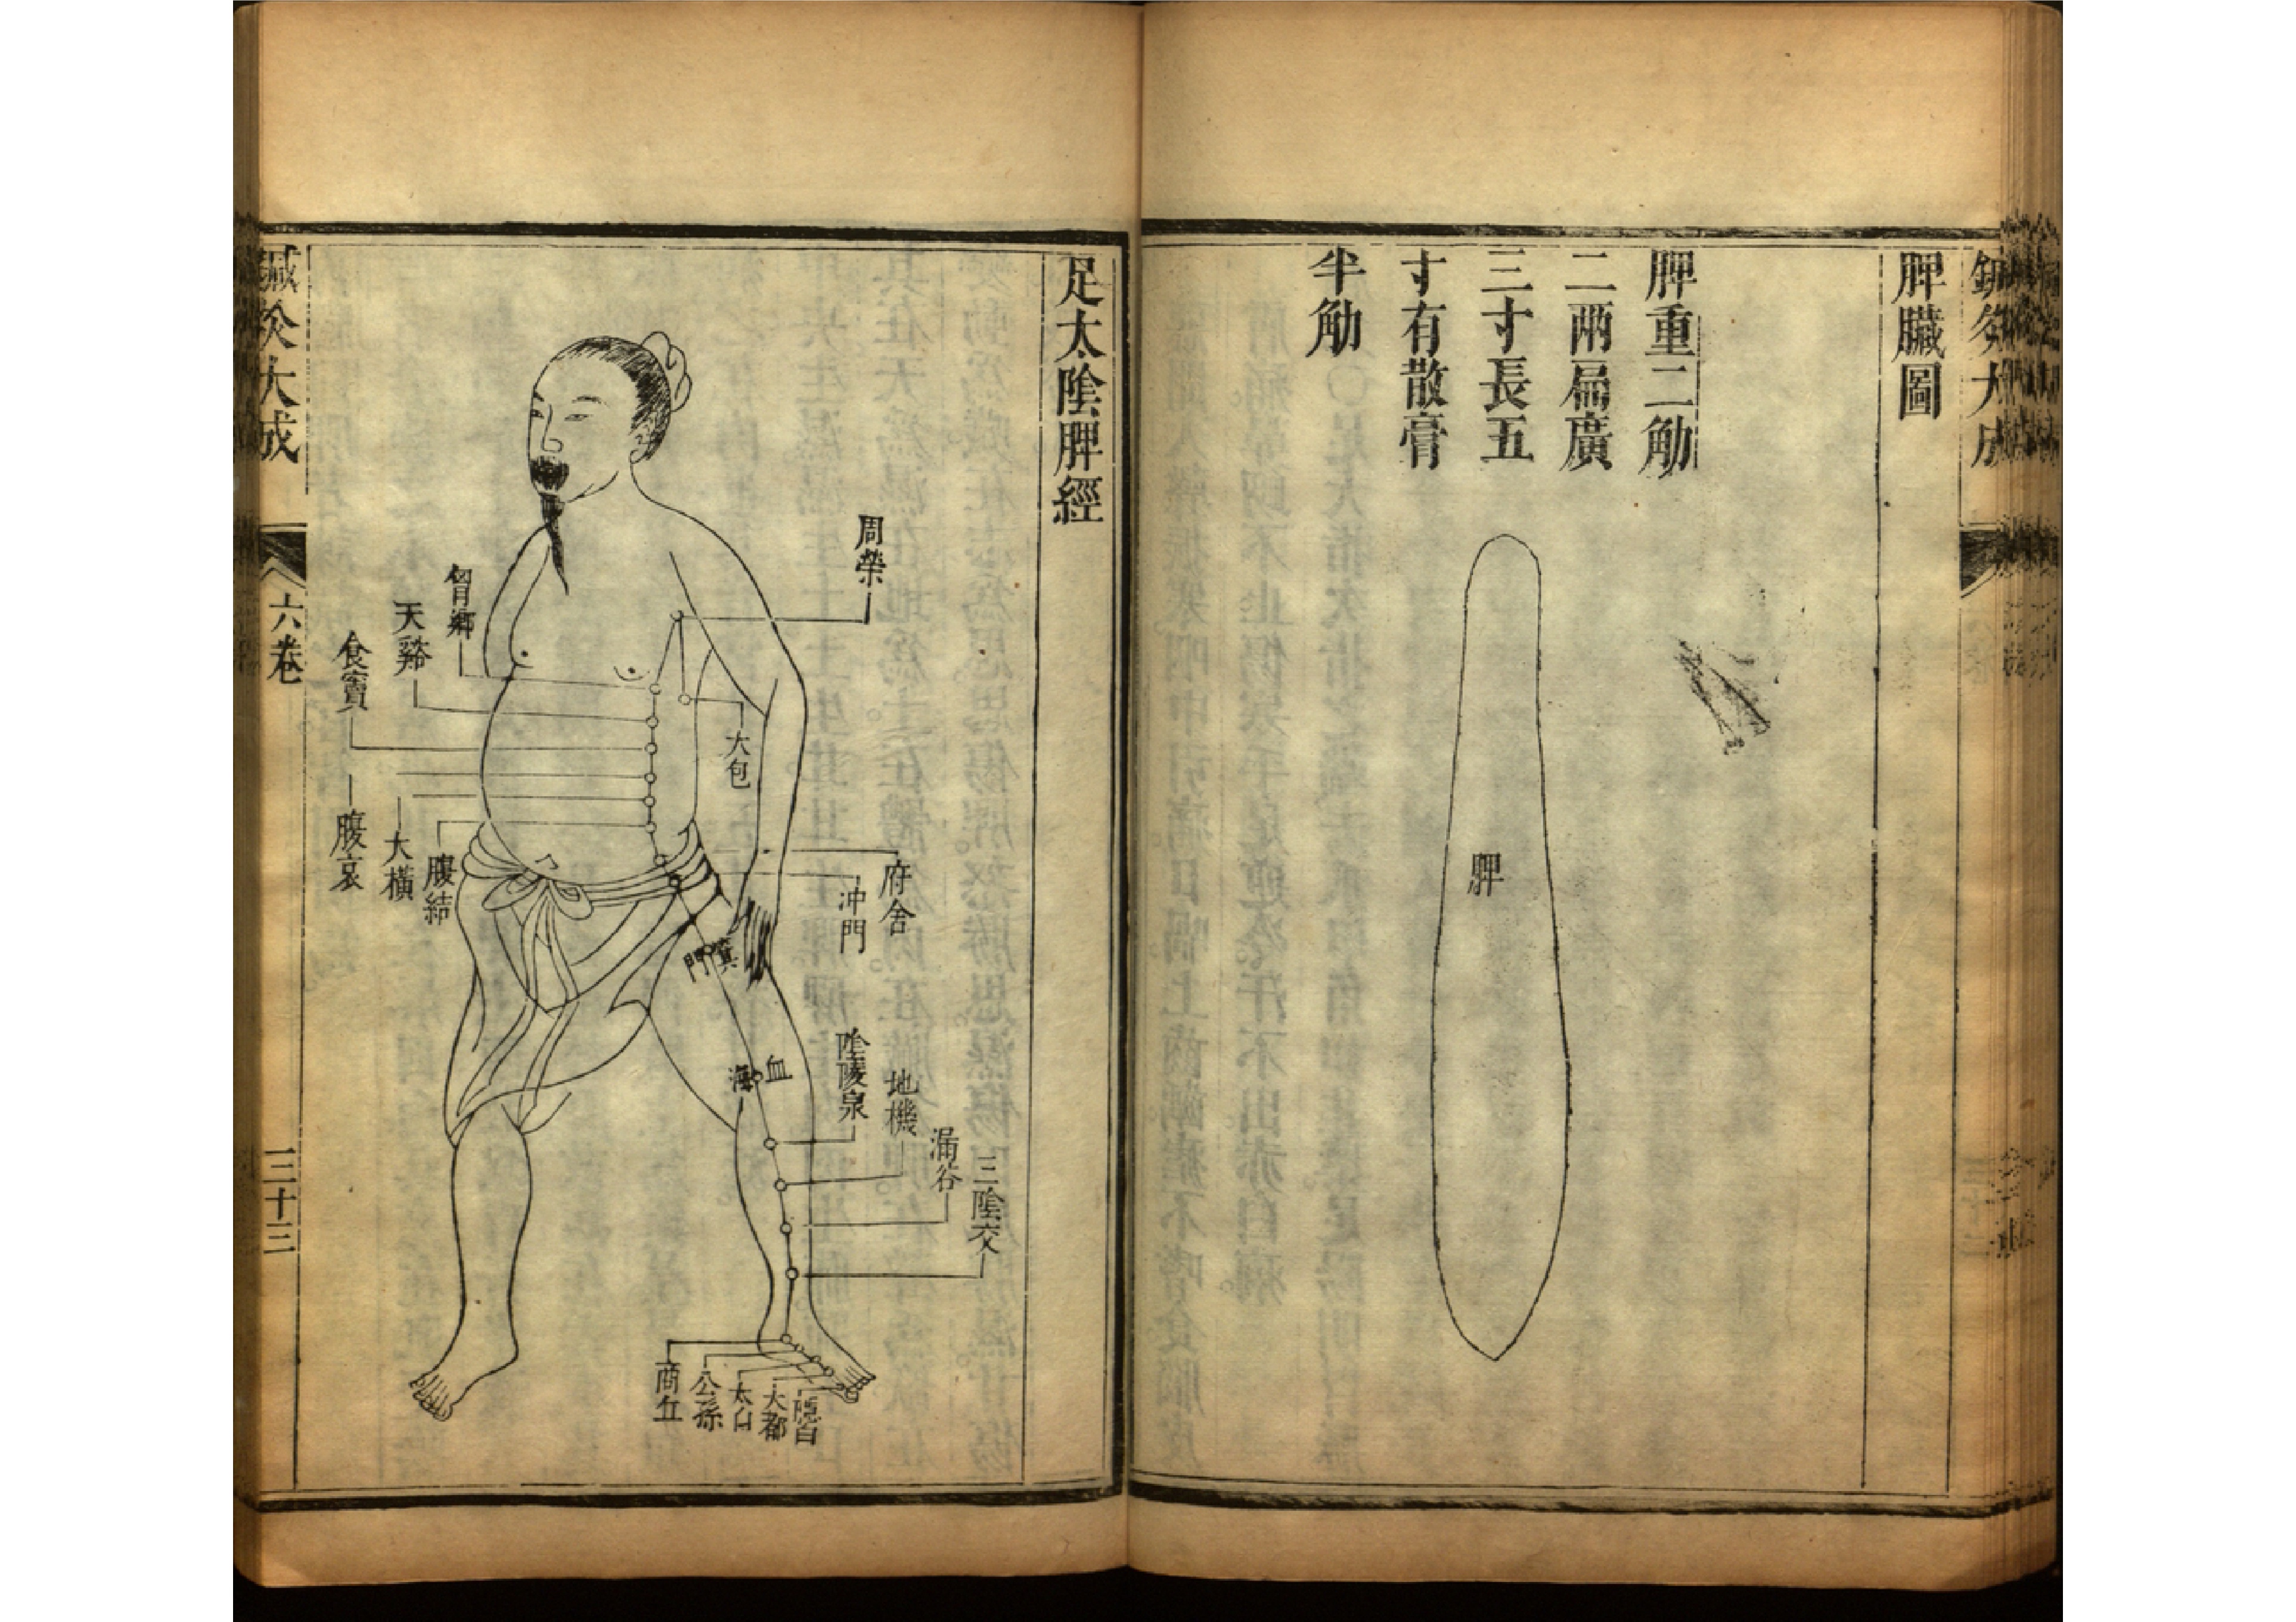 脾臟圖
脾重二觔
二兩扁廣
三寸長五
寸有散膏
半觔
脾
足太陰脾經
周榮
胷鄉
天谿
食竇
大包
腹哀
大橫
腹結
府舍
沖門
箕門
血海
陰陵泉
地機
漏谷
三陰交
商丘
公孫
太白
大都
隱白
鍼灸大成
六卷
三十三